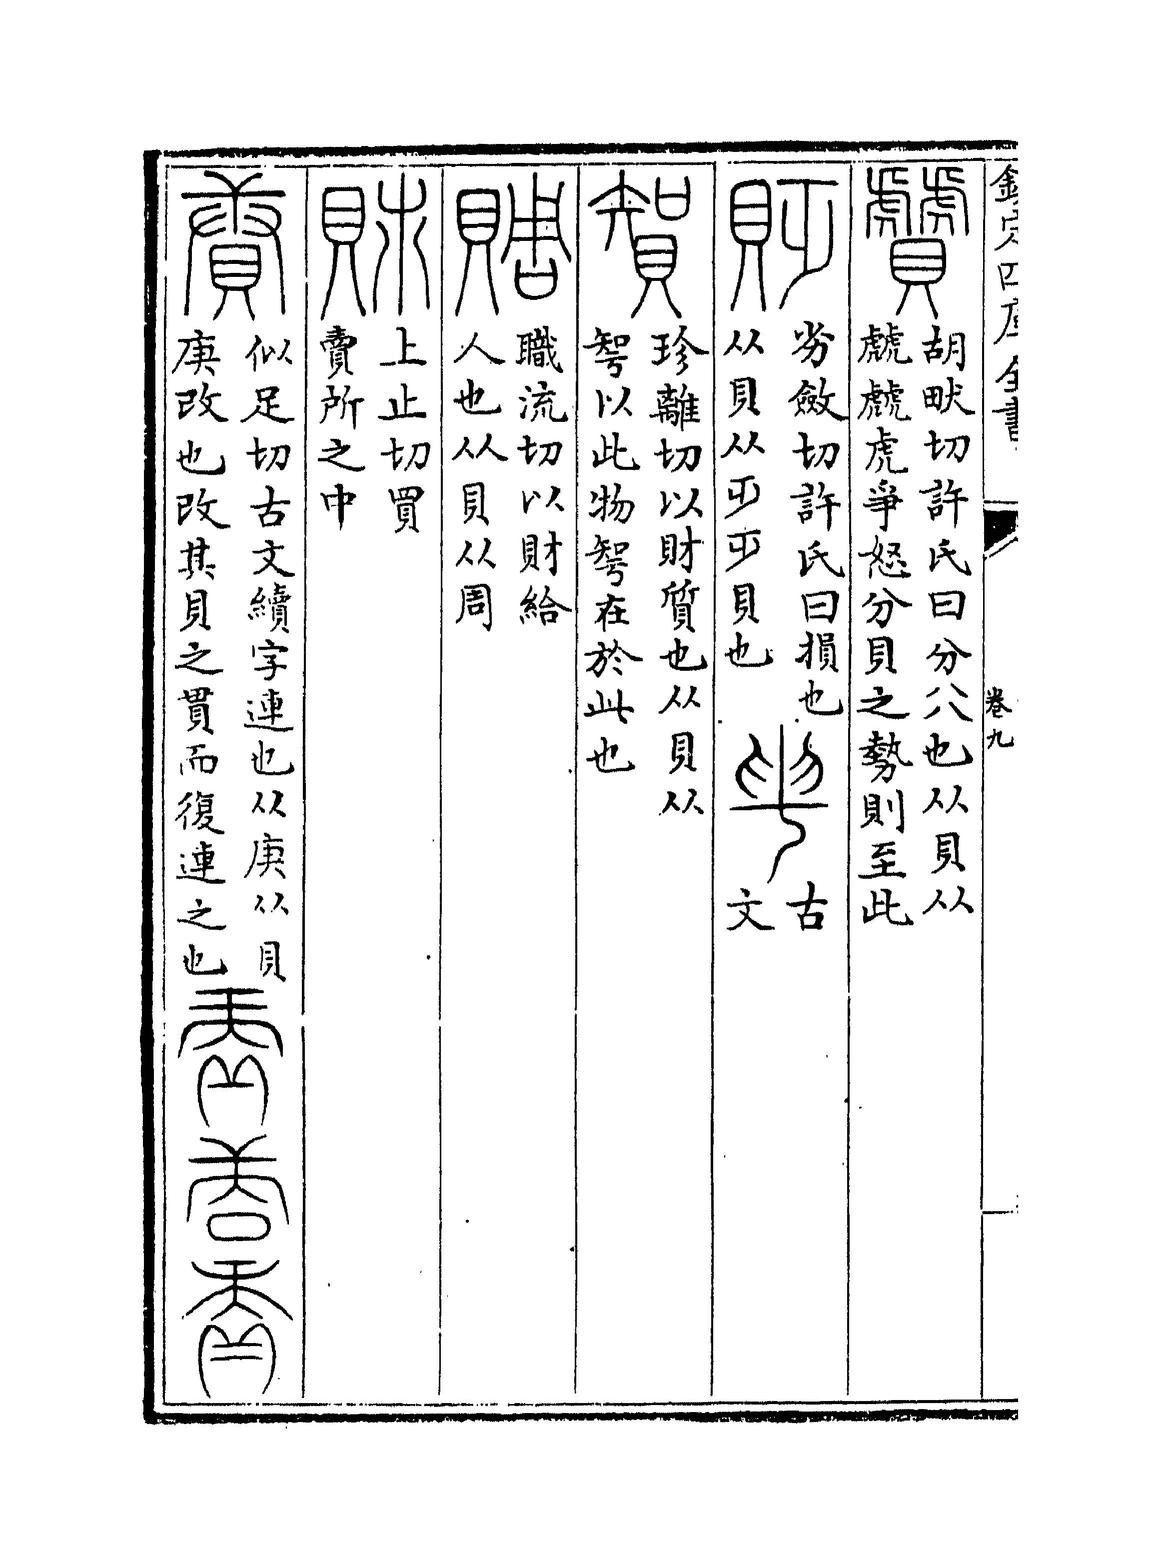 欽定四庫全書
卷九
贙
胡畎切許氏曰分八也从貝从
虤虤虎爭怒分貝之勢則至此
貶
劣斂切許氏曰損也
从貝从丏丏貝也
古
文
珍離切以財質也从貝从
智以此物智在於此也
賙
職流切以財給
人也从貝从周
上止切買
賣所之中
賡
似足切古文續字連也从庚从貝
庚改也改其貝之貫而復連之也